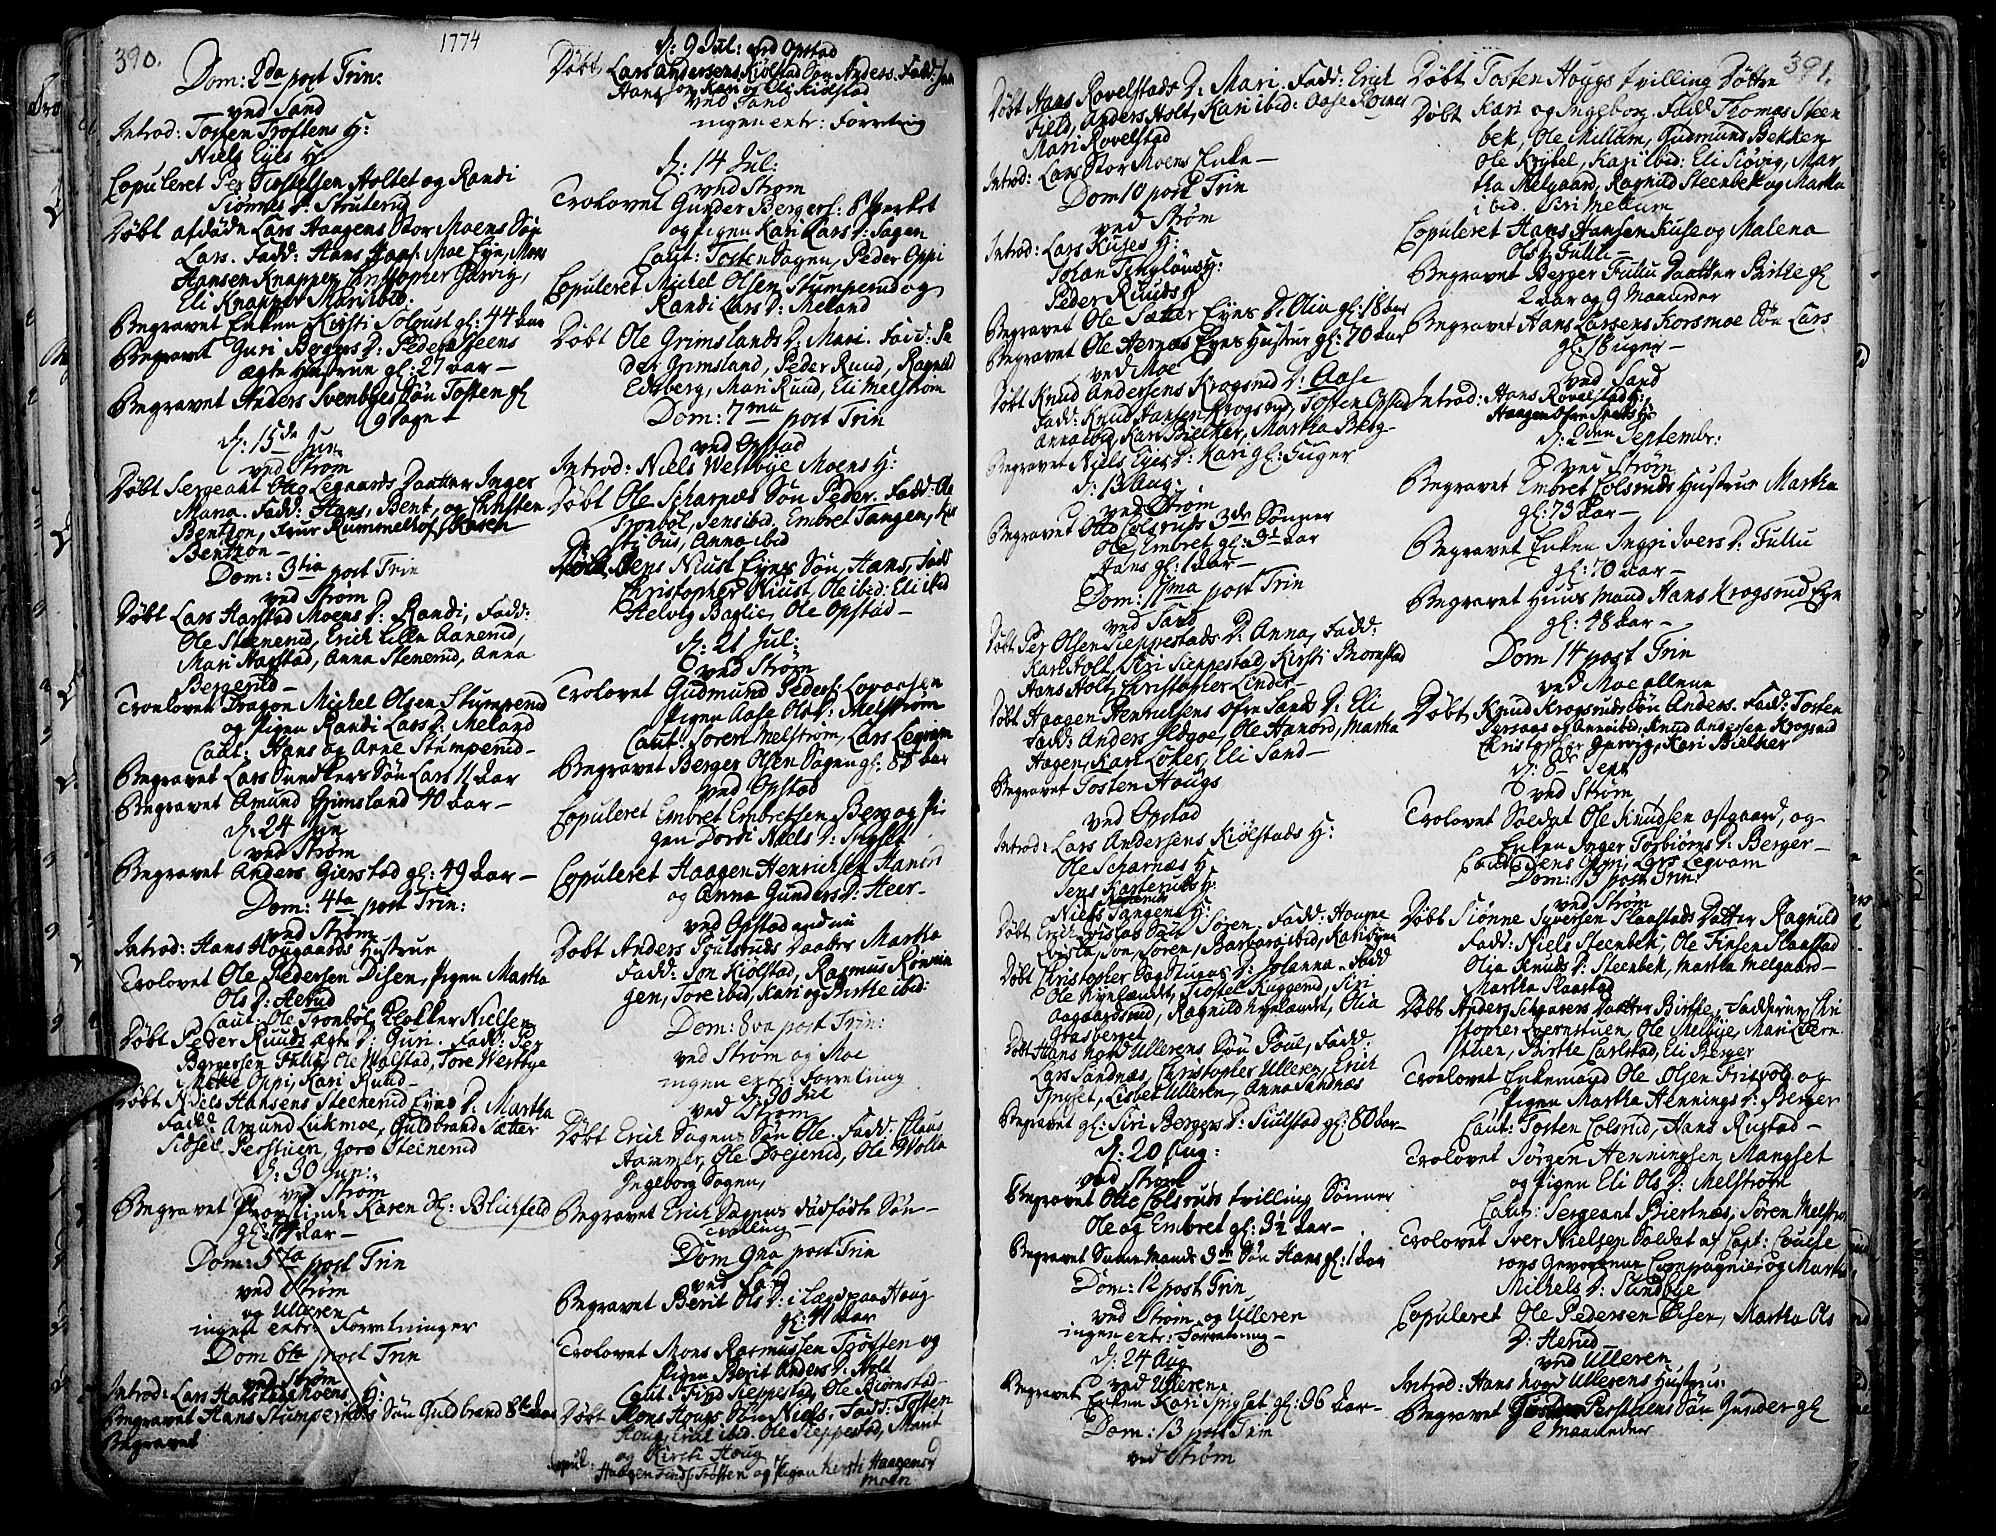 390.
1774
Dom: 2da post Trin:
ved Sand
Introd: Tosten Trøftens H:
Niels Eyes H:
Copuleret Per Tiostelsen Holtet og Randi
Siønnes D: Struterud
Døbt afdøde Lars Haagens Stor Moens Søn
Lars. Fadd: Hans Haaf: Moe Eye, Mons
Hansen Knapper, Christopher Gurvig,
Eli Knapper Mari ibid:
Begravet Enken Kirsti Soloust gl: 44 aar
Begravet Guri Bergers D: Peder
ægte Hustrue gl: 27 aar —
Begravet Anders Svenbyes Søn Tosten gl
9 dage
d: 15de Jun.
ved Strøm
Døbt Sergeant Otto Legaards Daatter Inger
Maria. Fadd: Hans, Bent, og Christen
Bentzon, Frue Rummelhof,
Bentzon —
Dom: 3tia post Trin
ved Strøm
Døbt Lars Harstad Moens D: Randi, Fadd:
Ole Stenerud, Erich Lille Aanerud,
Mari Harstad, Anna Stenerud, Anna
Bergerud —
Troelovet Dragon Michel Olsen Stumperud
og Pigen Randi Lars D: Meland
Caut: Hans og Arne Stumperud —
Begravet Lars Sundkers Søn Lars 11 aar
Begravet Amund Grimsland 40 aar —
d: 24 Jun
ved Strøm
Begravet Anders Gierstad gl: 49 aar —
Dom: 4ta post Trin:
ved Strøm
Introd: Hans Hougaards Hustrue
Trolovet Ole Pedersen Disen, Pigen Martha
Ols D: Herud
Caut: Ole Tronbøl, Klokker Nielsen
Døbt Peder Ruuds ægte D: Guri. Fadd: Per
Børgersen Ole Walstad, Tore Westbye
Oppi, Kari Ruud —
Døbt Niels Hansens Stenerud Eyes D: Martha
Fadd: Amund Lukmoe, Guldbrand Sætter
Sidsel Perstuen, Goro Stenerud
d: 30 Jun:
ved Strøm
Begravet Provstinde Karen Blichfeld
gl: aar —
Dom: 5ta post Trin
ved Strøm
og Ulleren
ingen extr: Forretninger
Dom 6ta post Trin
ved Strøm
Introd: Lars Harstad Moens H:
Begravet Hans Stumperuds Søn Guldbrand
Begravet
d: 9 Jul: ved Opstad
Døbt Lars Andersens Kiølstad Søn Anders. Fadd:
Hans, Jon, Kari og Eli Kiølstad
ved Sand
ingen extr: Forretning
d: 14 Jul:
ved Strøm
Trolovet Gunder Bergers: Børket
og Pigen Kari Lars D: Sagen
Caut: Tosten Sagen, Peder Oppi
Copuleret Michel Olsen Stumperud og
Randi Lars D: Meland
Døbt Ole Grimslands D: Mari. Fadd: Pe
der Grimsland, Peder Ruud, Ragnild
Edsberg, Mari Ruud, Eli Melstrøm
Dom: 7ma post Trin
ved Opstad
Introd: Niels Westbye Moens H:
Døbt Ole Scharnæs Søn Peder. Fadd: Ole
Tronbøl, Jens ibid. Embret Tangen, Kir
sti Hus, Anna ibid
Døbt Jens Niust Eyes Søn, Hans, Fadd
Christopher Niust, Ole ibid: Eli ibid
Helvig Baglie, Ole Opstad —
d: 21 Jul:
ved Strøm
Trolovet Gudmund Peders:
Pigen Aase Ols D: Melstrøm
Caut: Søren Melstrøm, Lars Legvam
Begravet Berger Olsen Sagen gl: 85 aar
ved Opstad
Copuleret Embret Embretsen Berg og Pi
gen Dordi Niels D: Spigset
Copuleret Haagen Henrichsen Hanerd
og Anna Gunders D: Heer —
ved Opstad endnu
Døbt Anders Sputsruds Daatter Martha
Fadd: Jon Kiølstad, Rasmus Rønnin
gen, Tore ibid, Kari og Birthe ibid:
Dom: 8va post Trin:
ved Strøm og Moe
ingen extr: Forretning
d: 30 Jul
ved Strøm
Døbt Erich Sagens Søn Ole. Fadd: Claus
Hammer, Ole Drejerud, Ole Wolla
Ingeborg Sagen,
Begravet Erich Sagens dødfødte Søn —
tvilling —
Dom 9na post Trin
ved Sand
Begravet Berit Ols D: i Lægd paa Houg
gl: 41 aar
Trolovet Mons Rasmussen Trøften og
Pigen Berit Anders D: Holt
Caut: Find Sieppestad, Ole Biørnstad —
Døbt Mons Hougs Søn Niels. Fadd: Tosten
Houg, Erich ibid: Ole Sieppestad, Marit
og Kirsti Houg
Copul: Haagen Finds: Trøften og Pigen Kersti Haagens D
Moen
391.
Døbt Hans Rovelstads D: Mari. Fadd: Erich
Field, Anders Holt, Kari ibid: Aase
Mari Rovelstad
Introd: Lars Stor Moens Enke —
Dom 10 post Trin
ved Strøm
Introd: Lars Kuses H:
Johan Tingløus H:
Peder Ruuds H
Begravet Ole Sætter Eyes D: Olia gl: 18 aar
Begravet Ole Aernæs Eyes Hustrue gl: 70 aar
ved Moe
Døbt Knud Andersens Krogsrud D: Aase
Fadd: Knud Hansen Krogsrud, Tosten Opstad
Anna ibid, Kari Bielker, Martha Berg —
Begravet Niels Eyes D: Kari gl: 5 uger
d: 13 Aug:
ved Strøm
Begravet Otto Colsruds 3de Sønner
Ole, Embret gl: 3½ aar
Hans gl: 1 aar —
Dom: 11ma post Trin
ved Sand
Døbt Per Olsen Sieppestads D: Anna, Fadd:
Kari Holt, Siri Sieppestad, Kirsti Biornstad
Hans Holt, Christopher Linder —
Døbt Haagen Henrichsens Øfre Sands D: Eli
Fadd: Anders Oldgoe, Ole Hanord, Martha
Hagen, Kari Løken, Eli Sand —
Begravet Tosten Hougs
ved Opstad
Introd: Lars Andersens Kiølstads H:
Ole Scharnæs H
Jens Kasteruds H:
Niels Tangens H:
Døbt Erich Søn Søren, Fadd: Houpne
Jon, Søren, Barbara ibid,
Døbt Christopher Sagstuens D: Johanna. Fadd
Ole Kyelandt, Tiostel Kuggerud, Siri
Aagaardsrud, Ragnild Kyelandt, Olia
Grasberget
Døbt Hans Nord Ullerens Søn Poul, Fadd:
Lars Sandnæs, Christopher Ulleren, Erich
Spigset, Lisbet Ulleren, Anna Sandnæs
Begravet gl: Siri Bergers D: Siulstad gl: 80 aar —
d: 20 Aug:
ved Strøm
Begravet Otto Colsruds tvilling Sønner
Ole og Embret gl: 3½ aar —
Begravet Samme Mands 3de Søn Hans gl: 1 aar
Dom: 12 post Trin
ved Strøm og Ulleren
ingen extr: Forretning —
d: 24 Aug
ved Ulleren
Begravet Enken Kari Spigset gl: 96 aar —
Dom: 13 post Trin
ved Strøm
Døbt Tosten Hougs tvilling Døttre
Døbt Kari og Ingeborg. Fadd: Thomas Steen
bek, Ole Mellum, Gudmund Bekken
Ole Krybel, Kari ibid: Eli Siøvig, Mar
tha Melgaard, Ragnild Steenbek og Martha
ibid. Siri Mellum
Copuleret Hans Hansen Kuse og Malena
Ols D: Fullu
Begravet Berger Fullu Daatter Birthe gl
2 aar og 9 Maaneder
Begravet Hans Larsens Korsmoe Søn Lars
gl: 18 uger —
ved Sand
Introd: Hans Rovelstad H:
Haagen Øfre Sands H:
d: 2den Septembr:
ved Strøm
Begravet Embret Colsruds Hustrue Martha
gl: 73 aar —
Begravet Enken Ingri Ivers D: Fullu
gl: 70 aar —
Begravet Huus Mand Hans Krogsrud Eye
gl: 48 aar —
Dom 14 post Trin
ved Moe allene
Døbt Knud Krogsruds Søn Anders. Fadd: Tosten
og Anna ibid, Knud Andersen Krogsrud
Christopher Gurvig, Kari Bielker
d: 8de Sept
ved Strøm
Trolovet Soldat Ole Knudsen Ostgaard, og
Enken Inger Torbiørns D: Berger —
Caut: Jens Lars Legvam
Dom: 15 post Trin:
ved Strøm
Døbt Siønne Syversen Slaastads Datter Ragnild
Fadd: Niels Steenbek, Ole Finsen Slaastad
Olia Knuds D: Steenbek, Martha Melgaard —
Martha Slaastad
Døbt Anders Schaarers Daatter Birthe. Fadderne Chri
stopher Loernstuen, Ole Melbye, Mari Loern
stuen, Birthe Carlstad, Eli Berger
Troelovet Enkemand Ole Olsen Frisvold og
Pigen Martha Hennings D: Berger
Caut: Tosten Colsrud, Hans Rustad —
Trolovet Jørgen Henningsen Mangset
og Pigen Eli Ols D: Melstrøm
Caut: Sergeant Biertnæs, Søren Melstrøm
Trolovet Iver Nielsen Soldat af Capt:
rons Gevorbne Compagnie og Martha
Michels D: Sundbye
Copuleret Ole Pedersen Disen, Martha Ols
D: Herud —
ved Ulleren
Introd: Hans Nord Ullerens Hustrue.
Begravet Perstuens Søn Gunder gl
2 Maaneder